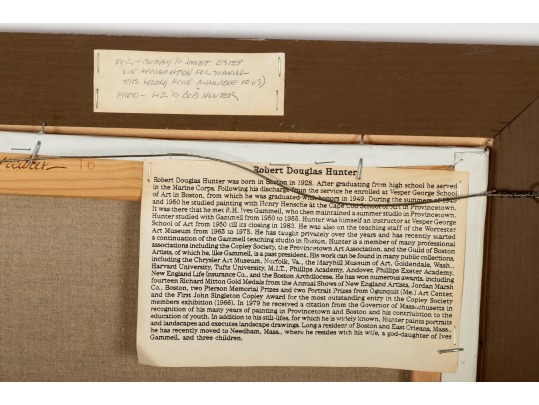 FOR - BOBBY & JANET ESTEP
(IN APPRECIATION FOR MAKING
THIS LOVELY HOME AVAILABLE TO US)
FROM - LIZ & BOB HUNTER
Fredrix
16
Robert Douglas Hunter
Robert Douglas Hunter was born in Boston in 1928. After graduating from high school he served
in the Marine Corps. Following his discharge from the service he enrolled at Vesper George School
of Art in Boston, from which he was graduated with honors in 1949. During the summers of 1949
and 1950 he studied painting with Henry Hensche at the Cape Cod School of Art in Provincetown.
It was there that he met R.H. Ives Gammell, who then maintained a summer studio in Provincetown.
Hunter studied with Gammell from 1950 to 1955. Hunter was himself an instructor at Vesper George
School of Art from 1950 till its closing in 1983. He was also on the teaching staff of the Worcester
Art Museum from 1965 to 1975. He has taught privately over the years and has recently started
a continuation of the Gammell teaching studio in Boston. Hunter is a member of many professional
associations including the Copley Society, the Provincetown Art Association, and the Guild of Boston
Artists, of which he, like Gammell, is a past president. His work can be found in many public collections,
including the Chrysler Art Museum, Norfolk, Va., the Maryhill Museum of Art, Goldendale, Wash.,
Harvard University, Tufts University, M.I.T., Phillips Academy, Andover, Phillips Exeter Academy,
New England Life Insurance Co., and the Boston Archdiocese. He has won numerous awards, including
fourteen Richard Mitton Gold Medals from the Annual Shows of New England Artists, Jordan Marsh
Co., Boston, two Pierson Memorial Prizes and two Portrait Prizes from Ogunquit (Me.) Art Center,
and the First John Singleton Copley Award for the most outstanding entry in the Copley Society
members exhibition (1966). In 1979 he received a citation from the Governor of Massachusetts in
recognition of his many years of painting in Provincetown and Boston and his contribution to the
education of youth. In addition to his still-lifes, for which he is widely known, Hunter paints portraits
and landscapes and executes landscape drawings. Long a resident of Boston and East Orleans, Mass.,
he has recently moved to Needham, Mass., where he resides with his wife, a god-daughter of Ives
Gammell, and three children.